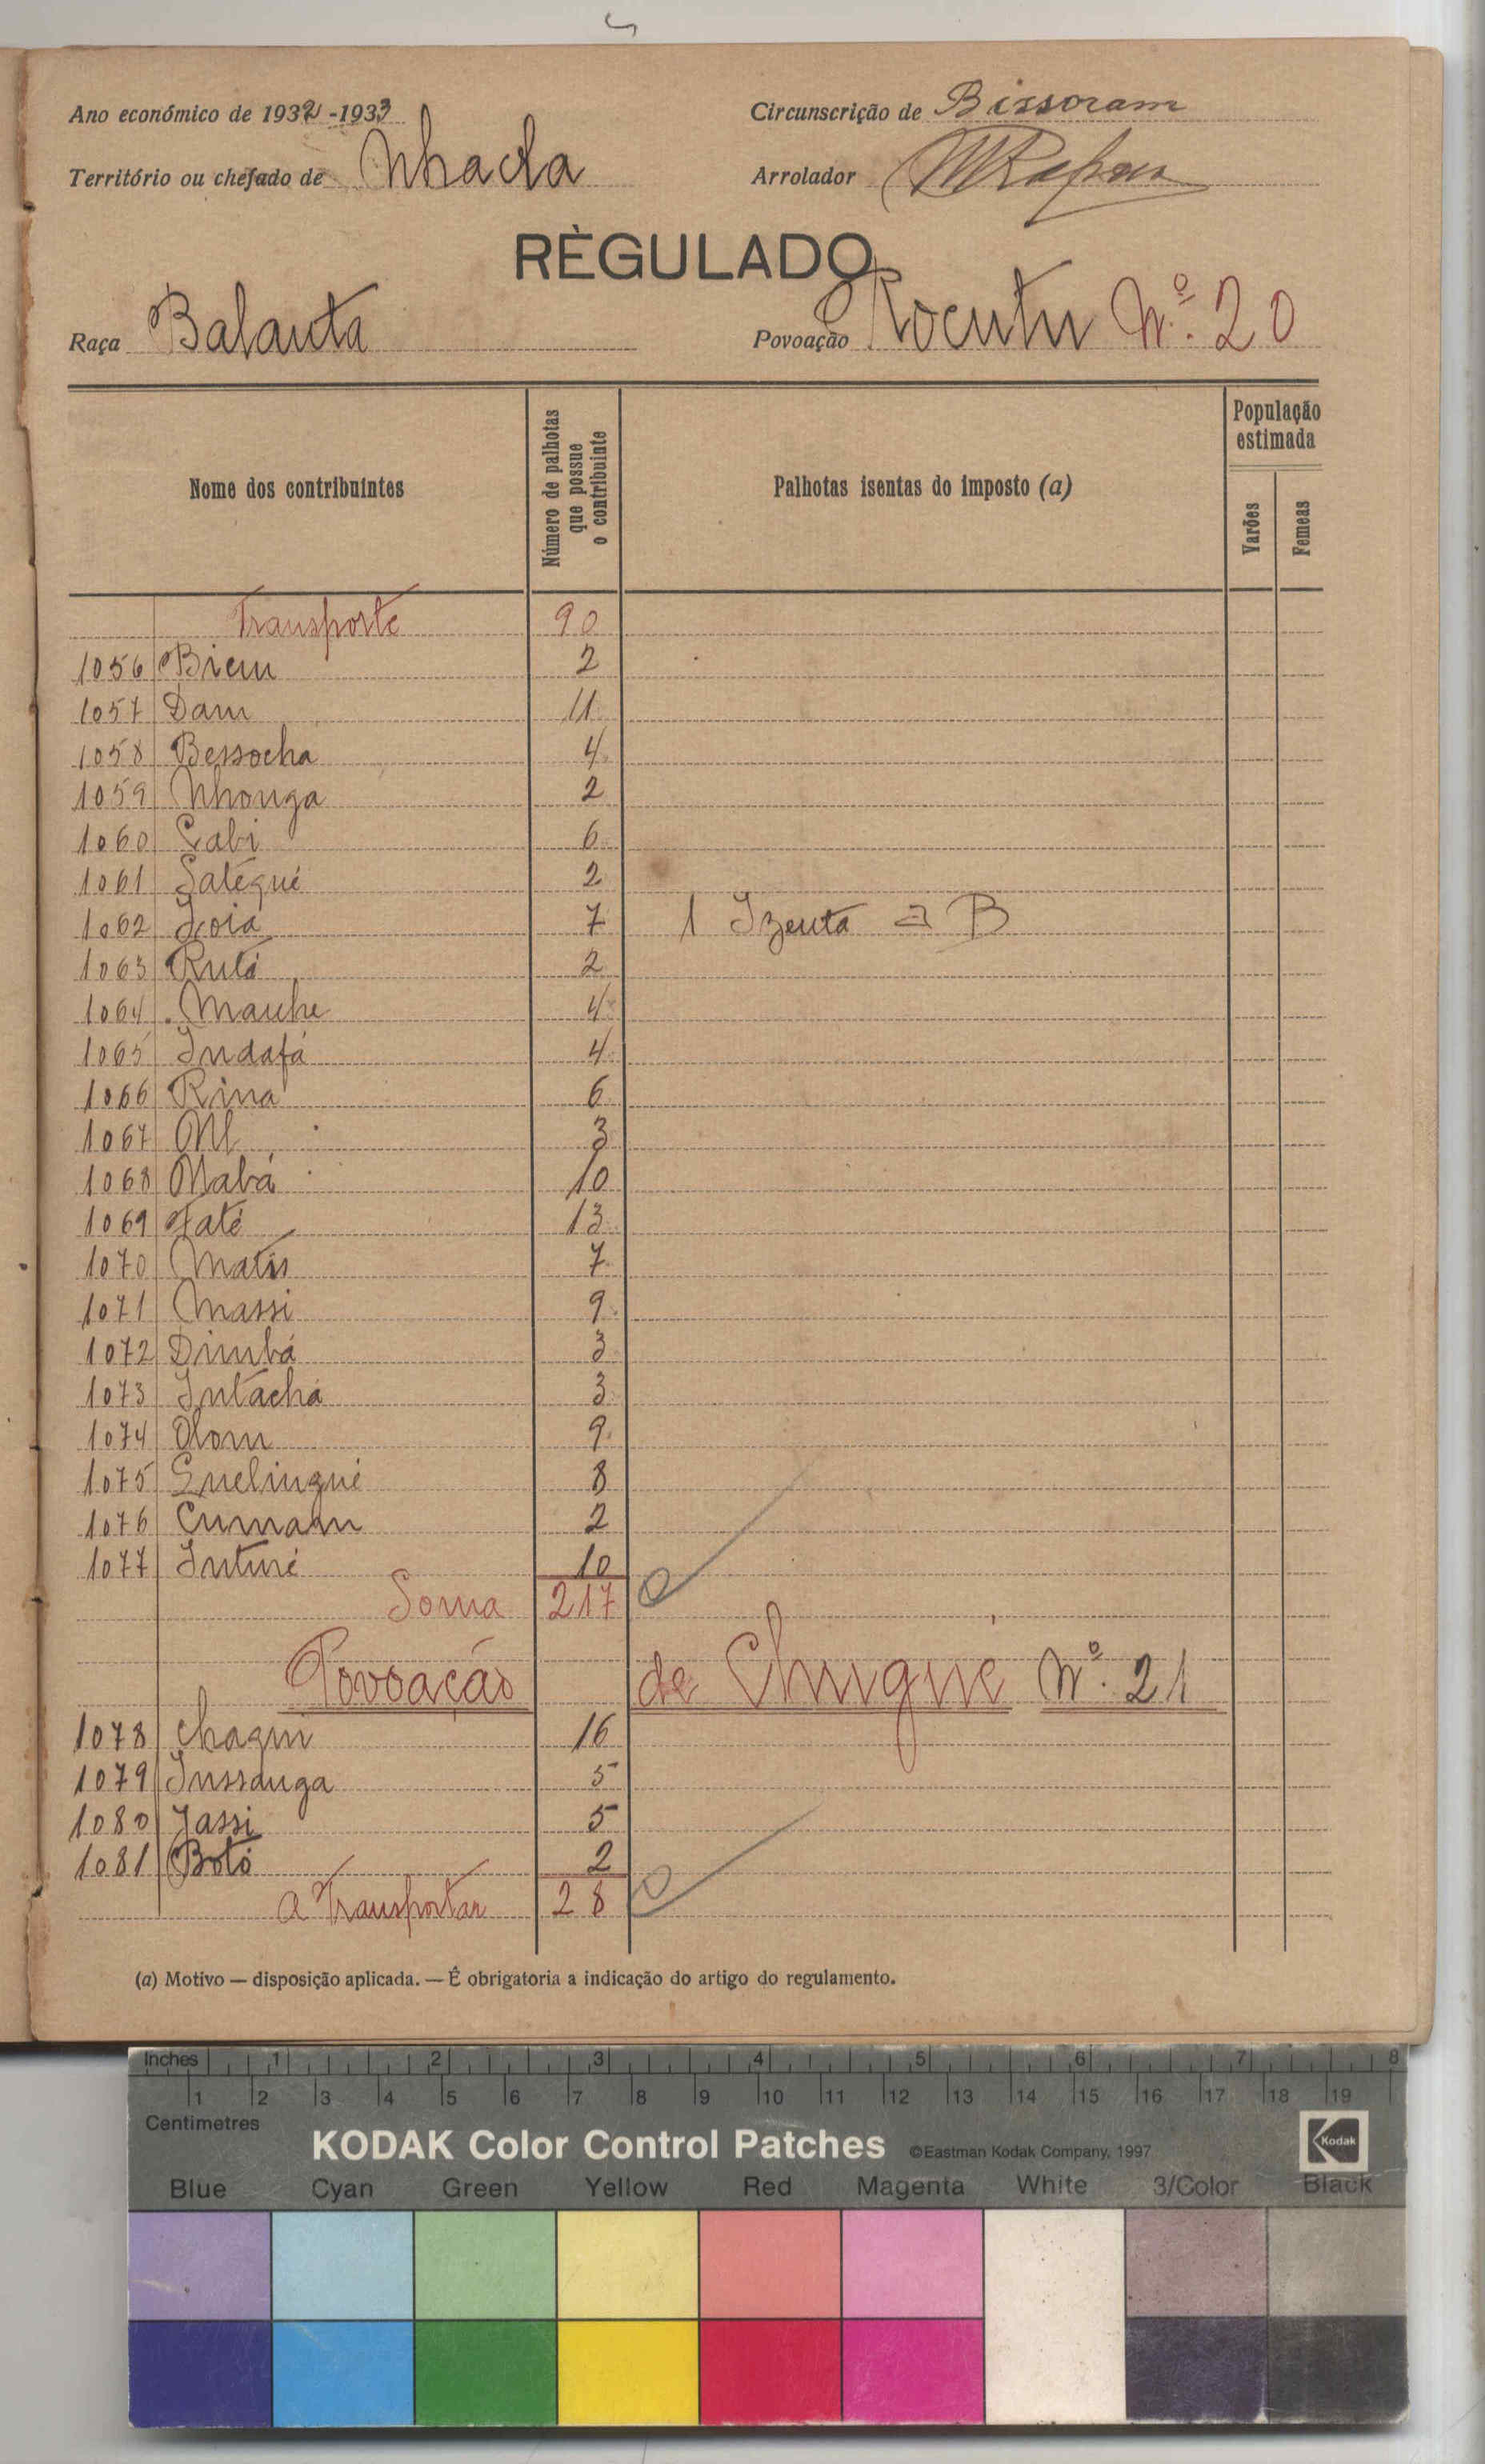 Ano económico de 1932-1933 Circunscrição de Bissoram
Território ou chefado de Nhacla Arrolador
RÈGULADO
Raça Balanta Povoação Rocutu Nº. 20
Nome dos contribuintes Número de palhotas que possue o contribuinte Palhotas isentas do imposto (a) População estimada Varões Femeas
Transporte 90
1056 Biem 2
1057 Dam 11
1058 Bessocha 4
1059 Nhonga 2
1060 Sabi 6
1061 Satégué 2
1062 Joiá 7 1 Izenta a B
1063 Rutá 2
1064 Manhe 4
1065 Indafá 4
1066 Rina 6
1067 3
1068 Mabá 10
1069 Faté 13
1070 Matis 7
1071 Massi 9
1072 Dimbá 3
1073 Intachá 3
1074 Olom 9
1075 Quelingué 8
1076 Cumam 2
1077 Inturé 10
Soma 217
Povoação de Chugué Nº. 21
1078 Chagni 16
1079 Inssanga 5
1080 Jassi 5
1081 Botó 2
A Transportar 28
(a) Motivo — disposição aplicada. — É obrigatoria a indicação do artigo do regulamento.
Inches 1 2 3 4 5 6 7 8
1 2 3 4 5 6 7 8 9 10 11 12 13 14 15 16 17 18 19
Centimetres
KODAK Color Control Patches ©Eastman Kodak Company, 1997 Kodak
Blue Cyan Green Yellow Red Magenta White 3/Color Black